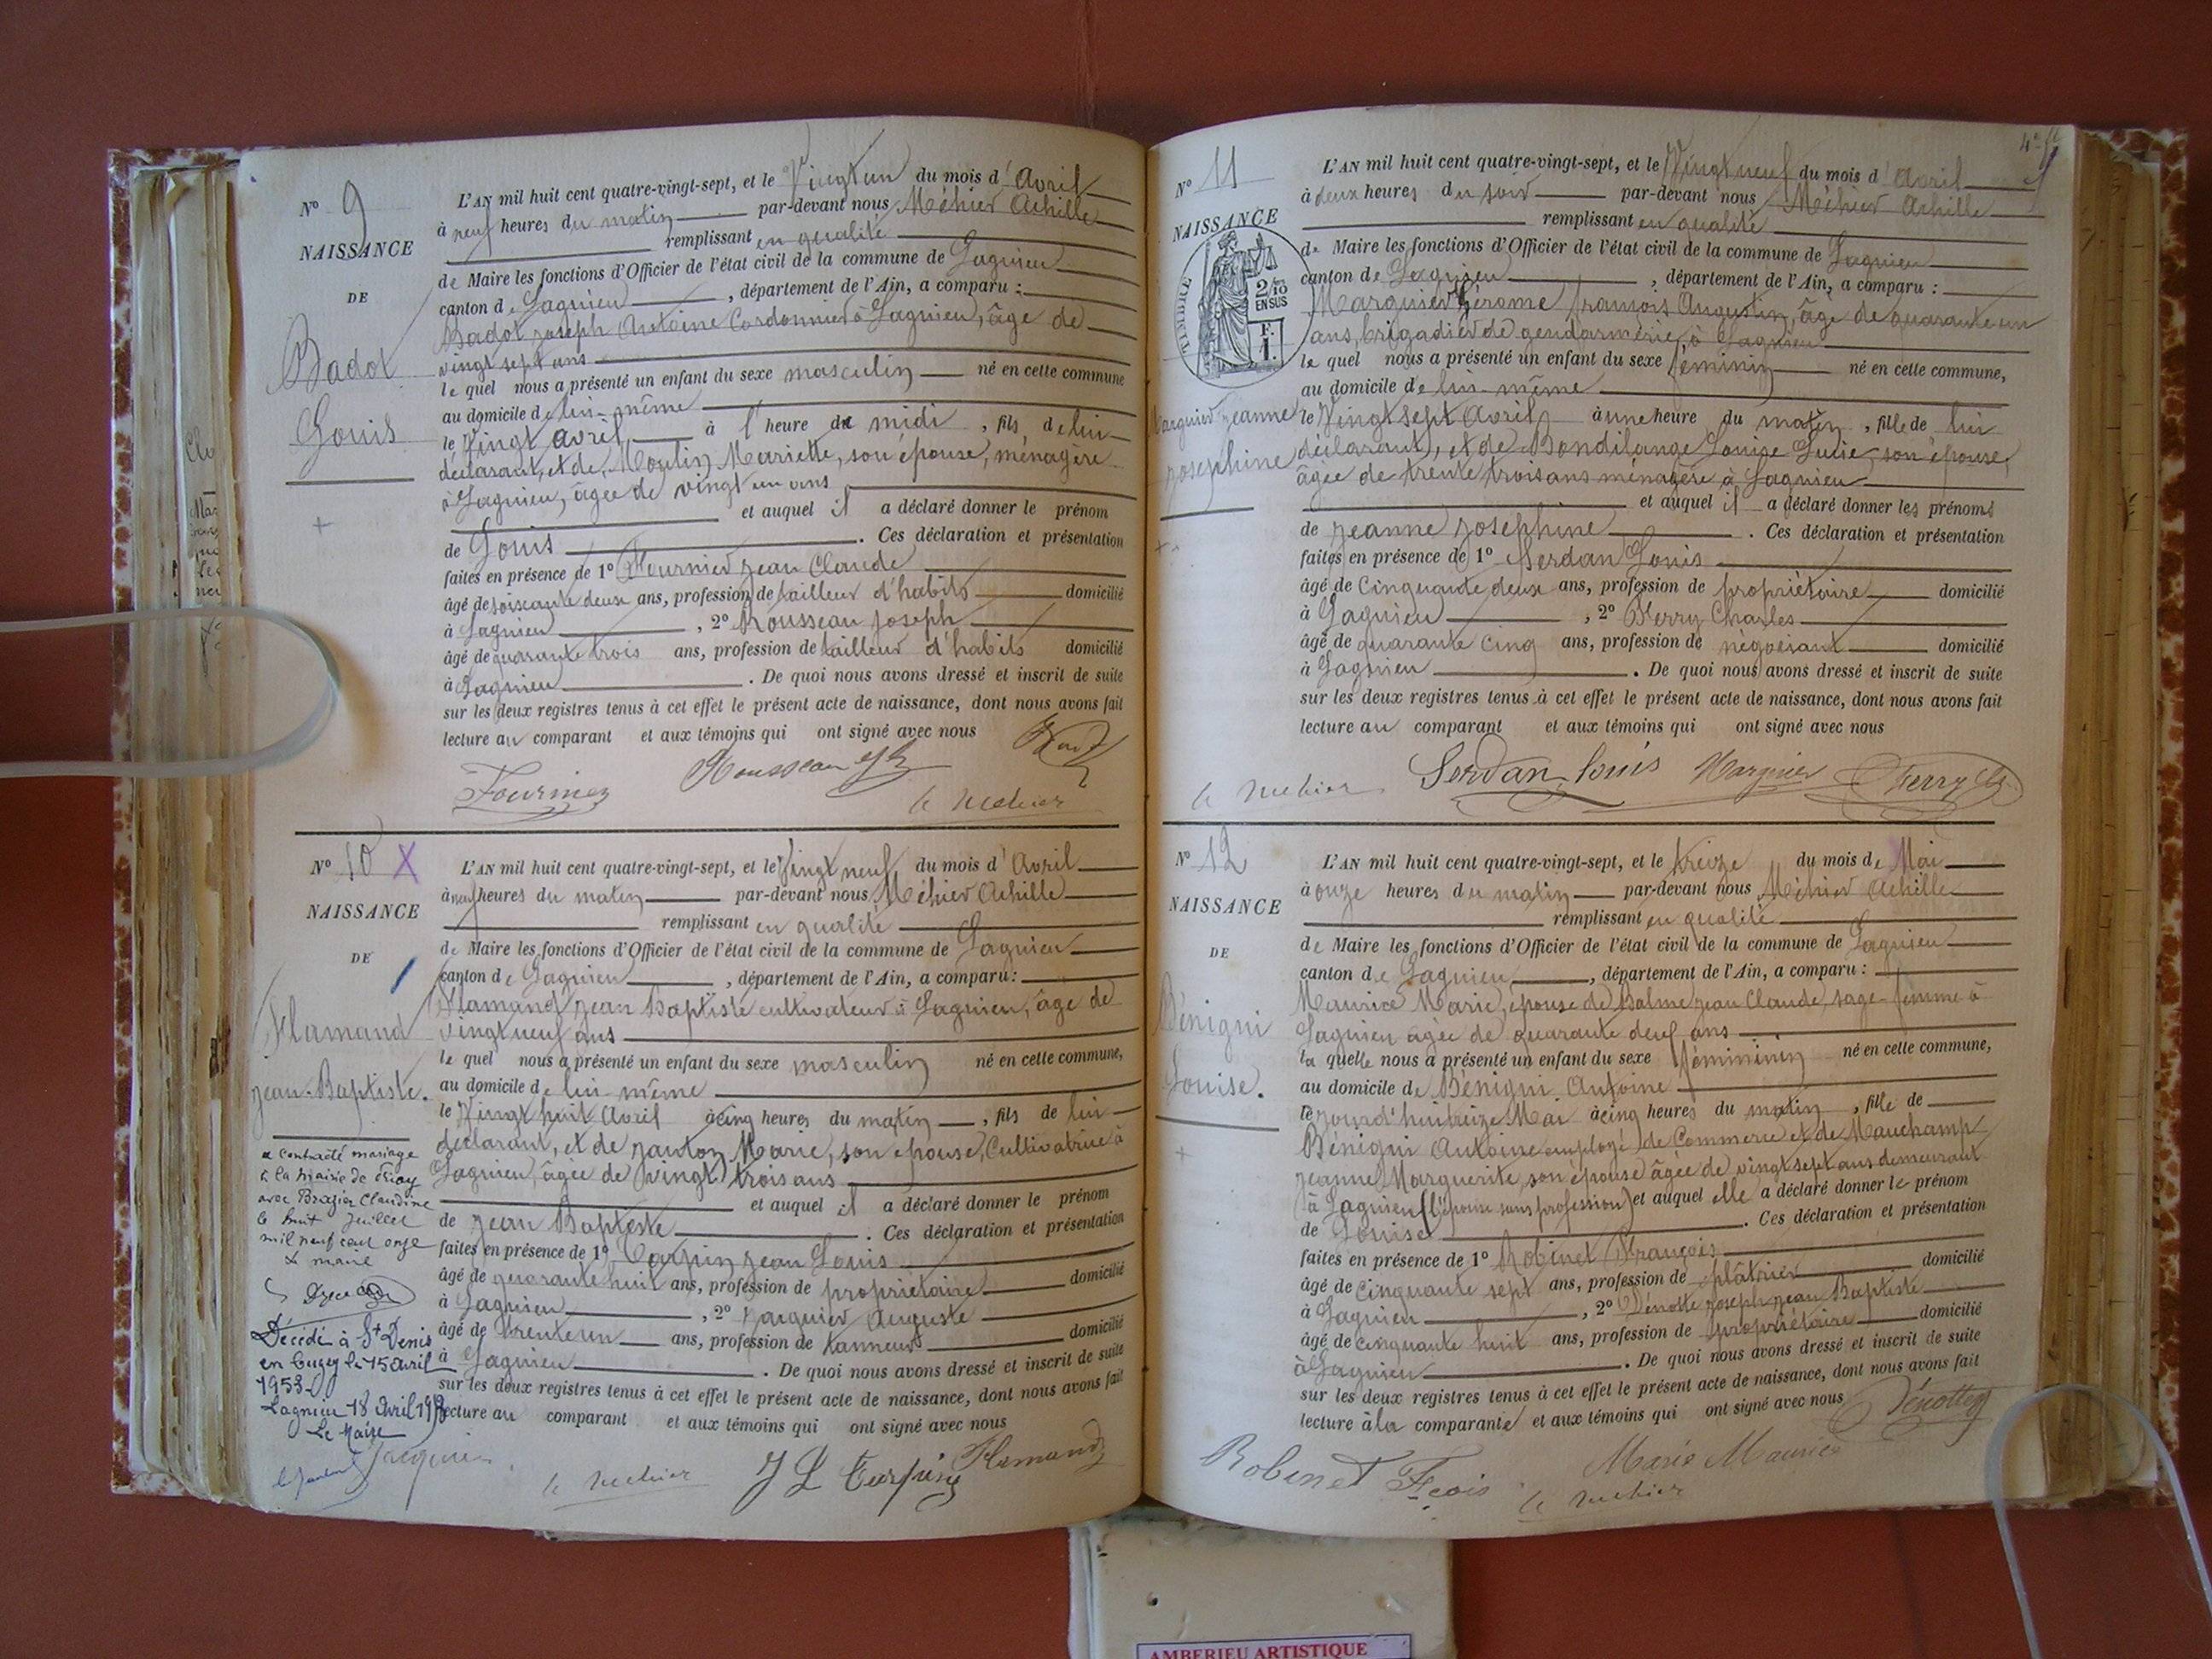 N° 9
NAISSANCE
DE
Badot
Louis
L'AN mil huit cent quatre-vingt-sept, et le Vingt un du mois d'Avril
à neuf heures du matin par-devant nous Méhier Achille
remplissant en qualité
de Maire les fonctions d'Officier de l'état civil de la commune de Lagnieu
canton de Lagnieu, département de l'Ain, a comparu :
Badot Joseph Antoine Cordonnier à Lagnieu, âgé de
vingt sept ans
le quel nous a présenté un enfant du sexe masculin né en cette commune
au domicile de lui-même
le Vingt Avril, à l'heure de midi, fils de lui
déclarant, et de Moulin Mariette, son épouse, ménagère
à Lagnieu, âgée de vingt un ans
et auquel il a déclaré donner le prénom
de Louis. Ces déclaration et présentation
faites en présence de 1° Fournier Jean Claude
âgé de soixante deux ans, profession de tailleur d'habits domicilié
à Lagnieu, 2° Rousseau Joseph
âgé de quarante trois ans, profession de tailleur d'habits domicilié
à Lagnieu. De quoi nous avons dressé et inscrit de suite
sur les deux registres tenus à cet effet le présent acte de naissance, dont nous avons fait
lecture au comparant et aux témoins qui ont signé avec nous
Fournier Rousseau
A Mehier
N° 10 X
NAISSANCE
DE
Flamand
Jean-Baptiste.
a contracté mariage
à la mairie de
avec Brazier Claudine
le huit Juillet
mil neuf cent onze
Le maire
Décédé à St Denis
en Bugey le 15 Avril
1953
Lagnieu 18 Avril
Le Maire
L'AN mil huit cent quatre-vingt-sept, et le Vingt neuf du mois d'Avril
à neuf heures du matin par-devant nous Méhier Achille
remplissant en qualité
de Maire les fonctions d'Officier de l'état civil de la commune de Lagnieu
canton de Lagnieu, département de l'Ain, a comparu :
Flamand Jean Baptiste cultivateur à Lagnieu, âgé de
vingt neuf ans
le quel nous a présenté un enfant du sexe masculin né en cette commune,
au domicile de lui-même
le Vingt huit Avril à cinq heures du matin, fils de lui
déclarant, et de Janton Marie, son épouse, Cultivatrice à
Lagnieu, âgée de vingt trois ans
et auquel il a déclaré donner le prénom
de Jean Baptiste. Ces déclaration et présentation
faites en présence de 1° Jean Louis
âgé de quarante huit ans, profession de propriétaire domicilié
à Lagnieu, 2° Auguste
âgé de trente un ans, profession de tanneur domicilié
à Lagnieu. De quoi nous avons dressé et inscrit de suite
sur les deux registres tenus à cet effet le présent acte de naissance, dont nous avons fait
lecture au comparant et aux témoins qui ont signé avec nous
A Mehier J L Flamand
4e
N° 11
NAISSANCE
TIMBRE
2/10
EN SUS
F.
1.
Marguier Jeanne
Joséphine
L'AN mil huit cent quatre-vingt-sept, et le Vingt neuf du mois d'Avril
à deux heures du soir par-devant nous Méhier Achille
remplissant en qualité
de Maire les fonctions d'Officier de l'état civil de la commune de Lagnieu
canton de Lagnieu, département de l'Ain, a comparu :
Marguier Gérome François Augustin, âgé de quarante un
ans, brigadier de gendarmerie, à Lagnieu
le quel nous a présenté un enfant du sexe féminin né en cette commune,
au domicile de lui-même
le Vingt sept Avril à une heure du matin, fille de lui
déclarant, et de Bondilange Louise Julie, son épouse,
âgée de trente trois ans ménagère à Lagnieu
et auquel il a déclaré donner les prénoms
de Jeanne Joséphine. Ces déclaration et présentation
faites en présence de 1° Serdan Louis
âgé de Cinquante deux ans, profession de propriétaire domicilié
à Lagnieu, 2° Ferry Charles
âgé de quarante cinq ans, profession de négociant domicilié
à Lagnieu. De quoi nous avons dressé et inscrit de suite
sur les deux registres tenus à cet effet le présent acte de naissance, dont nous avons fait
lecture au comparant et aux témoins qui ont signé avec nous
A Mehier Serdan Louis Marguier Ferry Ch
N° 12
NAISSANCE
DE
Bénigni
Louise.
L'AN mil huit cent quatre-vingt-sept, et le treize du mois de Mai
à onze heures du matin par-devant nous Méhier Achille
remplissant en qualité
de Maire les fonctions d'Officier de l'état civil de la commune de Lagnieu
canton de Lagnieu, département de l'Ain, a comparu :
Maurice Marie, épouse de Balme Jean Claude, sage-femme à
Lagnieu âgée de quarante neuf ans
la quelle nous a présenté un enfant du sexe féminin né en cette commune,
au domicile de Bénigni Antoine
le jourd'hui treize Mai à cinq heures du matin, fille de
Bénigni Antoine employé de Commerce et de Mauchamp
Jeanne Marguerite, son épouse âgée de vingt sept ans demeurant
à Lagnieu (l'épouse sans profession) et auquel elle a déclaré donner le prénom
de Louise. Ces déclaration et présentation
faites en présence de 1° Robinet François
âgé de cinquante sept ans, profession de plâtrier domicilié
à Lagnieu, 2° Joseph Jean Baptiste
âgé de cinquante huit ans, profession de propriétaire domicilié
à Lagnieu. De quoi nous avons dressé et inscrit de suite
sur les deux registres tenus à cet effet le présent acte de naissance, dont nous avons fait
lecture à la comparante et aux témoins qui ont signé avec nous
Robinet Fçois A Mehier Marie Maurice
AMBERIEU ARTISTIQUE